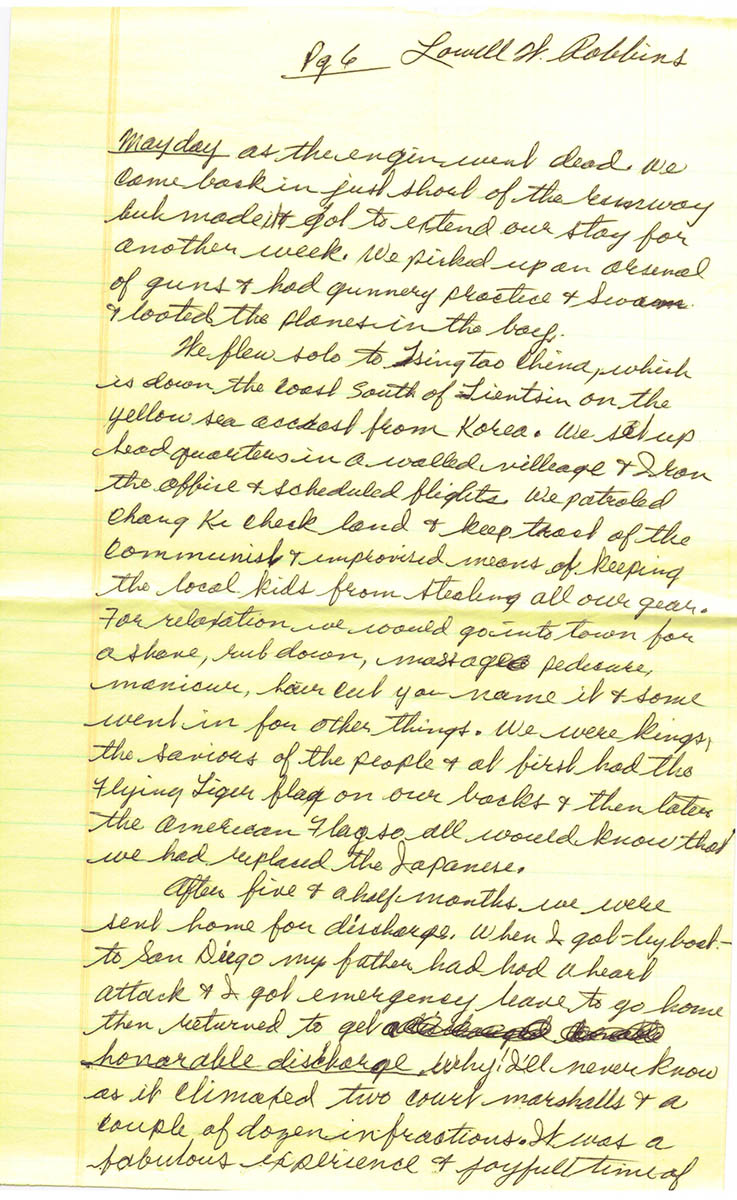 Pg 6 Lowell W. Robbins
Mayday as the engin went dead. We
come back in just short of the runway
but made it & got to extend our stay for
another week. We picked up an arsenal
of guns & had gunnery practice & swam
& looted the planes in the bay.
We flew solo to Tsingtao China, which
is down the coast South of Tientsin on the
yellow sea accrost from Korea. We set up
headquarters in a walled villeage & I ran
the office & scheduled flights. We patroled
Chang Ki Check land & keep trac of the
Communist & improvised means of keeping
the local kids from stealing all our gear.
For relaxation we would go into town for
a shave, rub down, massage pedicure,
manicur, hair cut you name it & some
went in for other things. We were kings,
the saviors of the people & at first had the
Flying Tiger flag on our backs & then later
the American Flag so all would know that
we had replaced the Japanese.
After five & a half months we were
sent home for discharge. When I got - by boat -
to San Diego my father had had a heart
attack & I got emergency leave to go home
then returned to get a
honorable discharge. Why! I'll never know
as it climaxed two court marshalls & a
couple of dozen infractions. It was a
fabulous experience & joyfull time of